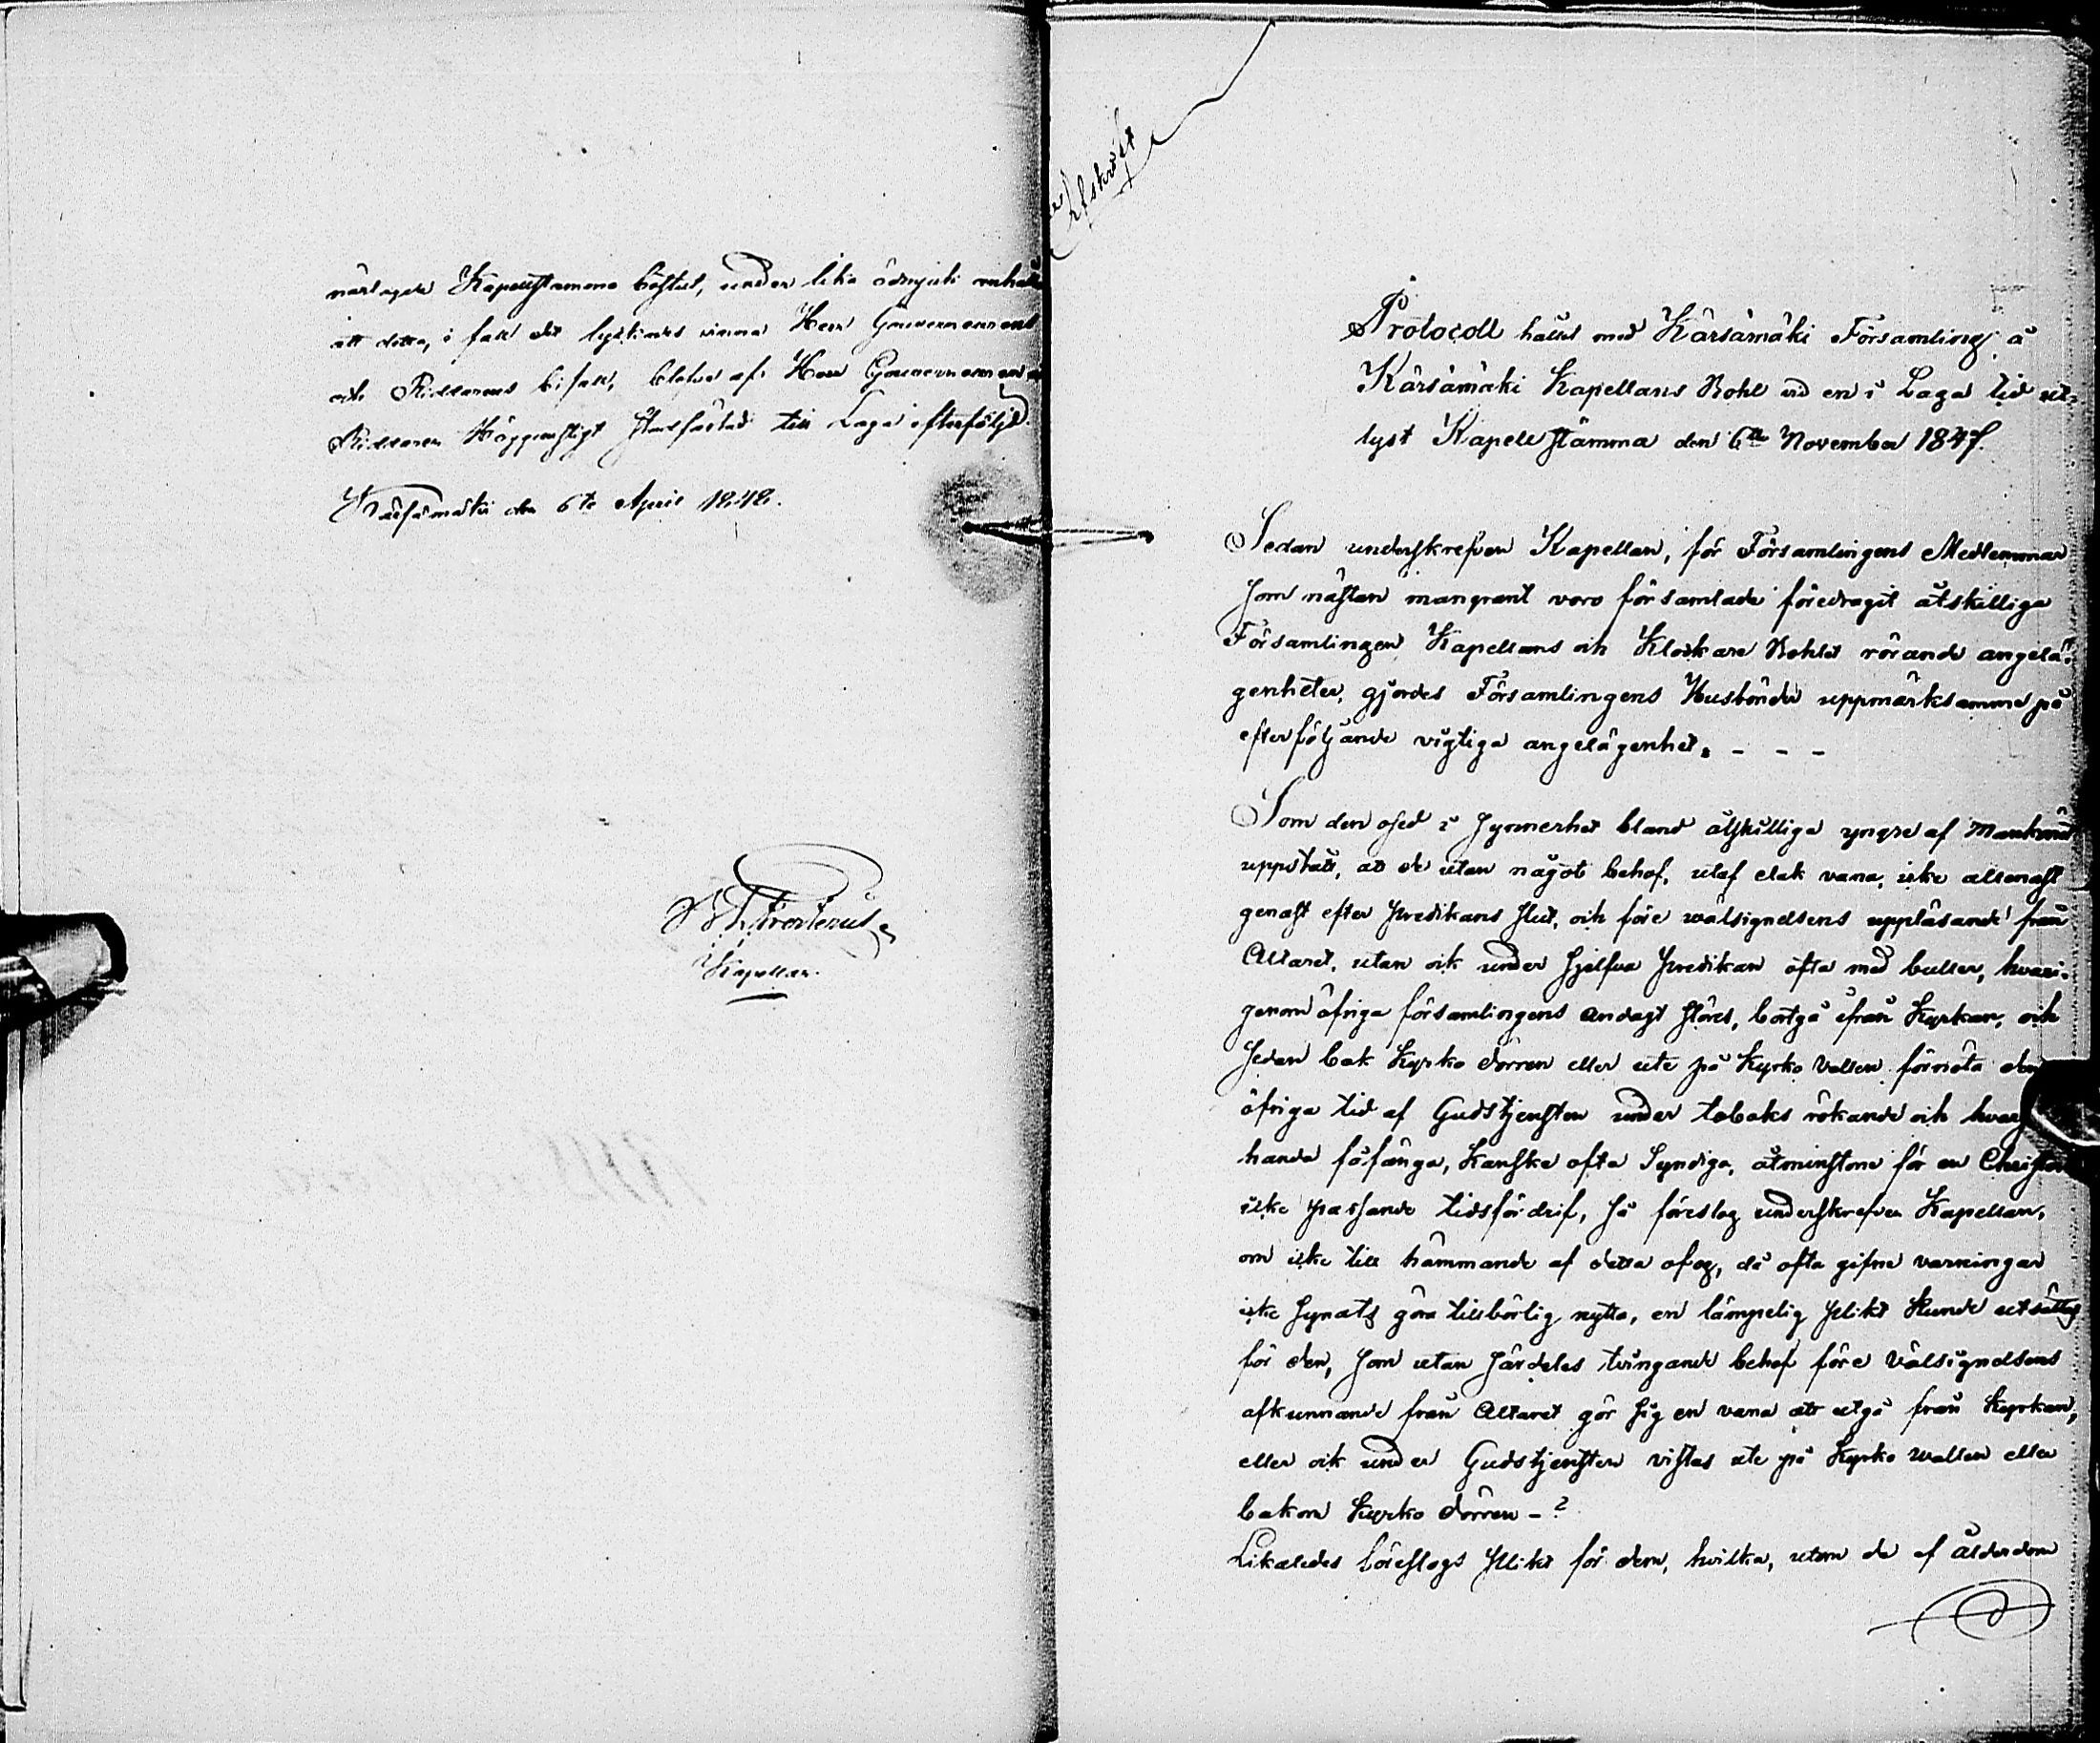 närlagde Kapellstämmo beslut, under lika ödmjuk anhåll
att detta, i fall det lyckades vinna Herr Gouverneurens
och Riddarens bifall, blefve af Herr Gouverneuren
Riddaren Höggunstigt stadfästad till Laga efterföljd.
Kärsämäki den 6te April 1848.
Kapellan.
Afskrift
Protocoll hållet med Kärsämäki Församling å
Kärsämäki Kapellans Bohl vid en i Laga tid ut-
lyst Kapell stämma den 6te November 1847.
Sedan underskrefven Kapellan, för Församlingens Medlemmar
som nästan mangrant voro församlade föredragit åtskilliga
Församlingen Kapellans och Klockare Bohlet rörande angelä-
genheter, gjordes Församlingens Husbönder uppmärksamme på
efterföljande vigtiga angelägenhet. - - -
Som den osed i synnerhet bland åtskilliga yngre af Mankönet
uppstått, att de utan något behof, utaf elak vana, icke allenast
genast efter Predikans slut, och före wälsignelsens uppläsande från
Altaret, utan ock under sjelfva Predikan ofta med buller, hvari-
genom öfriga församlingens andagt störes, bortgå ifrån Kyrkan, och
sedan bak Kyrko dörren eller ute på Kyrko Vallen förnöta den
öfriga tid af Gudstjensten under tobaks rökande och hvar
handa fåfänga, Kanske ofta Syndiga, åtminstone för en Christen
icke passande tidsfördrif, så föreslog underskrefven Kapellan,
om icke till hämmande af detta ofog, då ofta gifne varningar
icke synats göra tillbörlig nytta, en lämpelig plikt kunde utsättas
för den, som utan särdeles tvingande behof före Välsignelsens
afkunnande från Altaret gör sig en vana att utgå från Kyrkan,
eller ock under Gudstjensten vistas ute på Kyrko wallen eller
bakom Kyrko dörren - ?
Likaledes föreslogs plikt för dem, hvilka, utom de af ålderdom